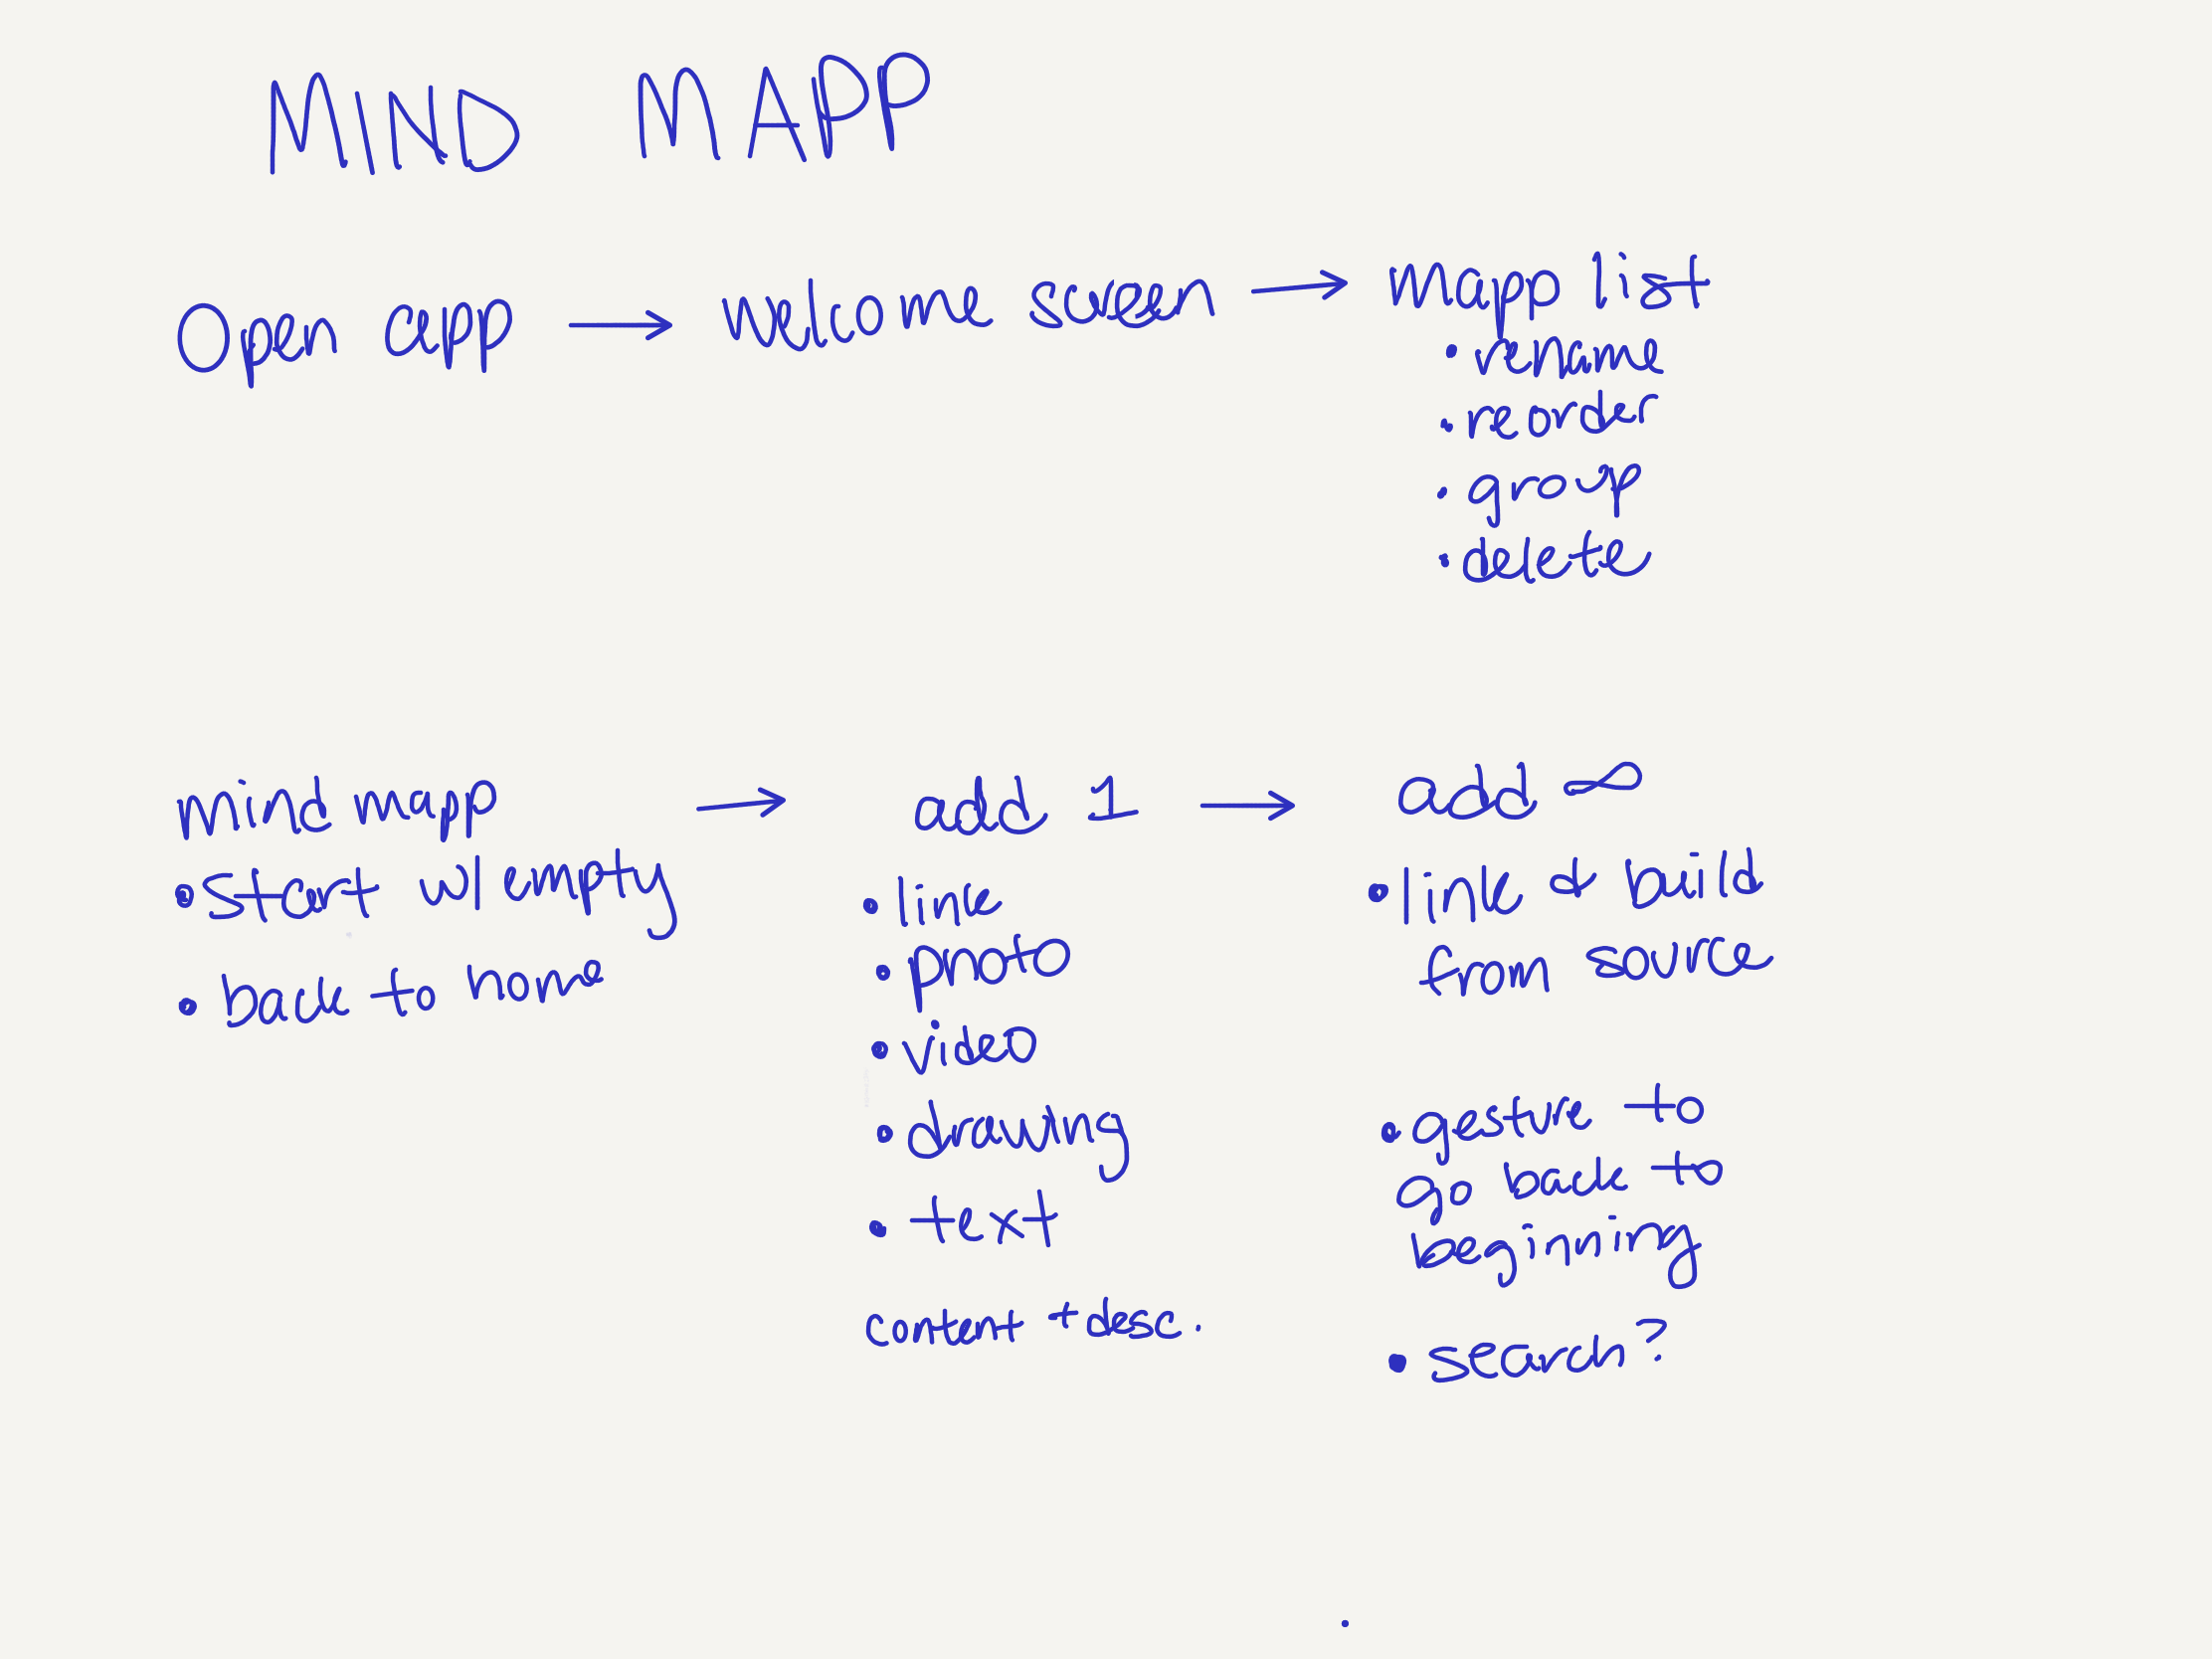 MIND MAPP
Open app → welcome screen → mapp list
• rename
• reorder
• group
• delete
mind mapp → add 1 → add ∞
• start w/ empty
• back to home
• link
• photo
• video
• drawing
• text
content + desc.
• link & build
from source
• gesture to
go back to
beginning
• search?